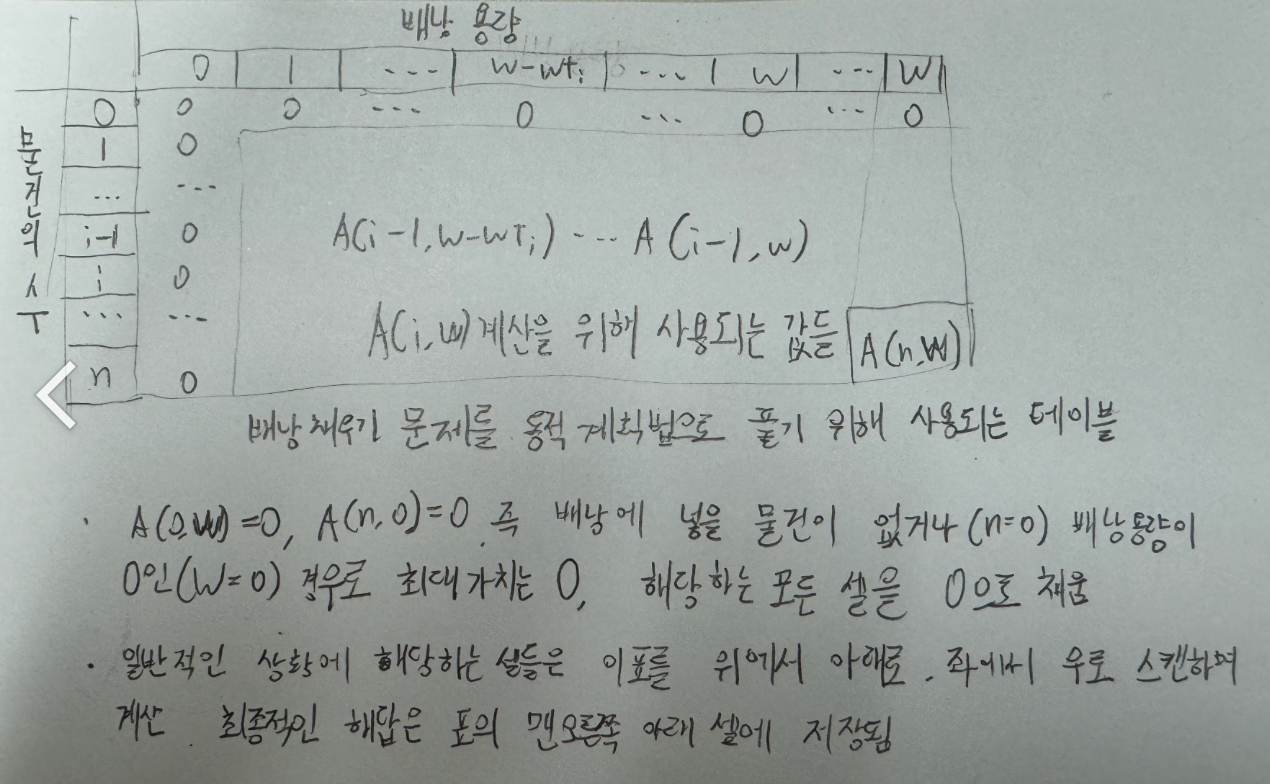 배낭 용량
0 1 --- w-wt i ... w ... W
0 0 0 --- 0 ... 0 ... 0
1 0
... ---
i-1 0 A(i-1, w-wt i) --- A(i-1, w)
i 0
... --- A(i, w) 계산을 위해 사용되는 값들 A(n, W)
n 0
물건의 수
배낭 채우기 문제를 동적 계획법으로 풀기 위해 사용되는 테이블
· A(0, W)=0, A(n, 0)=0 즉 배낭에 넣을 물건이 없거나 (n=0) 배낭용량이
0인(W=0) 경우로 최대가치는 0, 해당하는 모든 셀을 0으로 채움
· 일반적인 상황에 해당하는 셀들은 이표를 위에서 아래로, 좌에서 우로 스캔하며
계산. 최종적인 해답은 표의 맨오른쪽 아래 셀에 저장됨